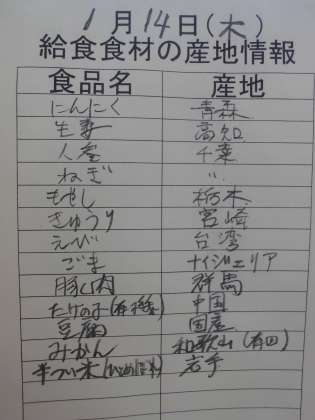 1月14日(木)
給食食材の産地情報
食品名 産地
にんにく 青森
生姜 高知
人参 千葉
ねぎ 〃
もやし 栃木
きゅうり 宮崎
えび 台湾
ごま ナイジェリア
豚肉 群馬
たけの子 中国
豆腐 国産
みかん 和歌山(有田)
岩手